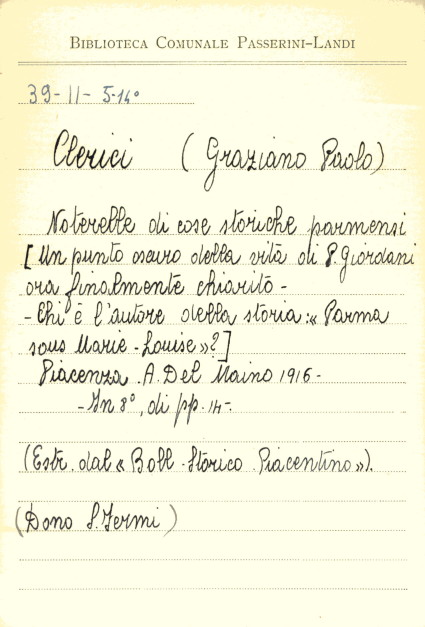 BIBLIOTECA COMUNALE PASSERINI-LANDI
39-II-5-14°
Clerici (Graziano Paolo)
Noterelle di cose storiche parmensi
[Un punto oscuro della vita di P. Giordani
ora finalmente chiarito -
- Chi è l'autore della storia: « Parma
sous Marie-Louise »?]
Piacenza. A. Del Maino 1916-
- In 8°, di pp. 14-.
(Estr. dal « Boll. Storico Piacentino »).
(Dono S. Fermi)